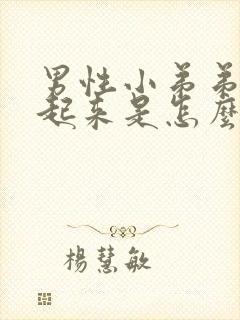 男性小弟弟
起來是怎麼
楊慧敏